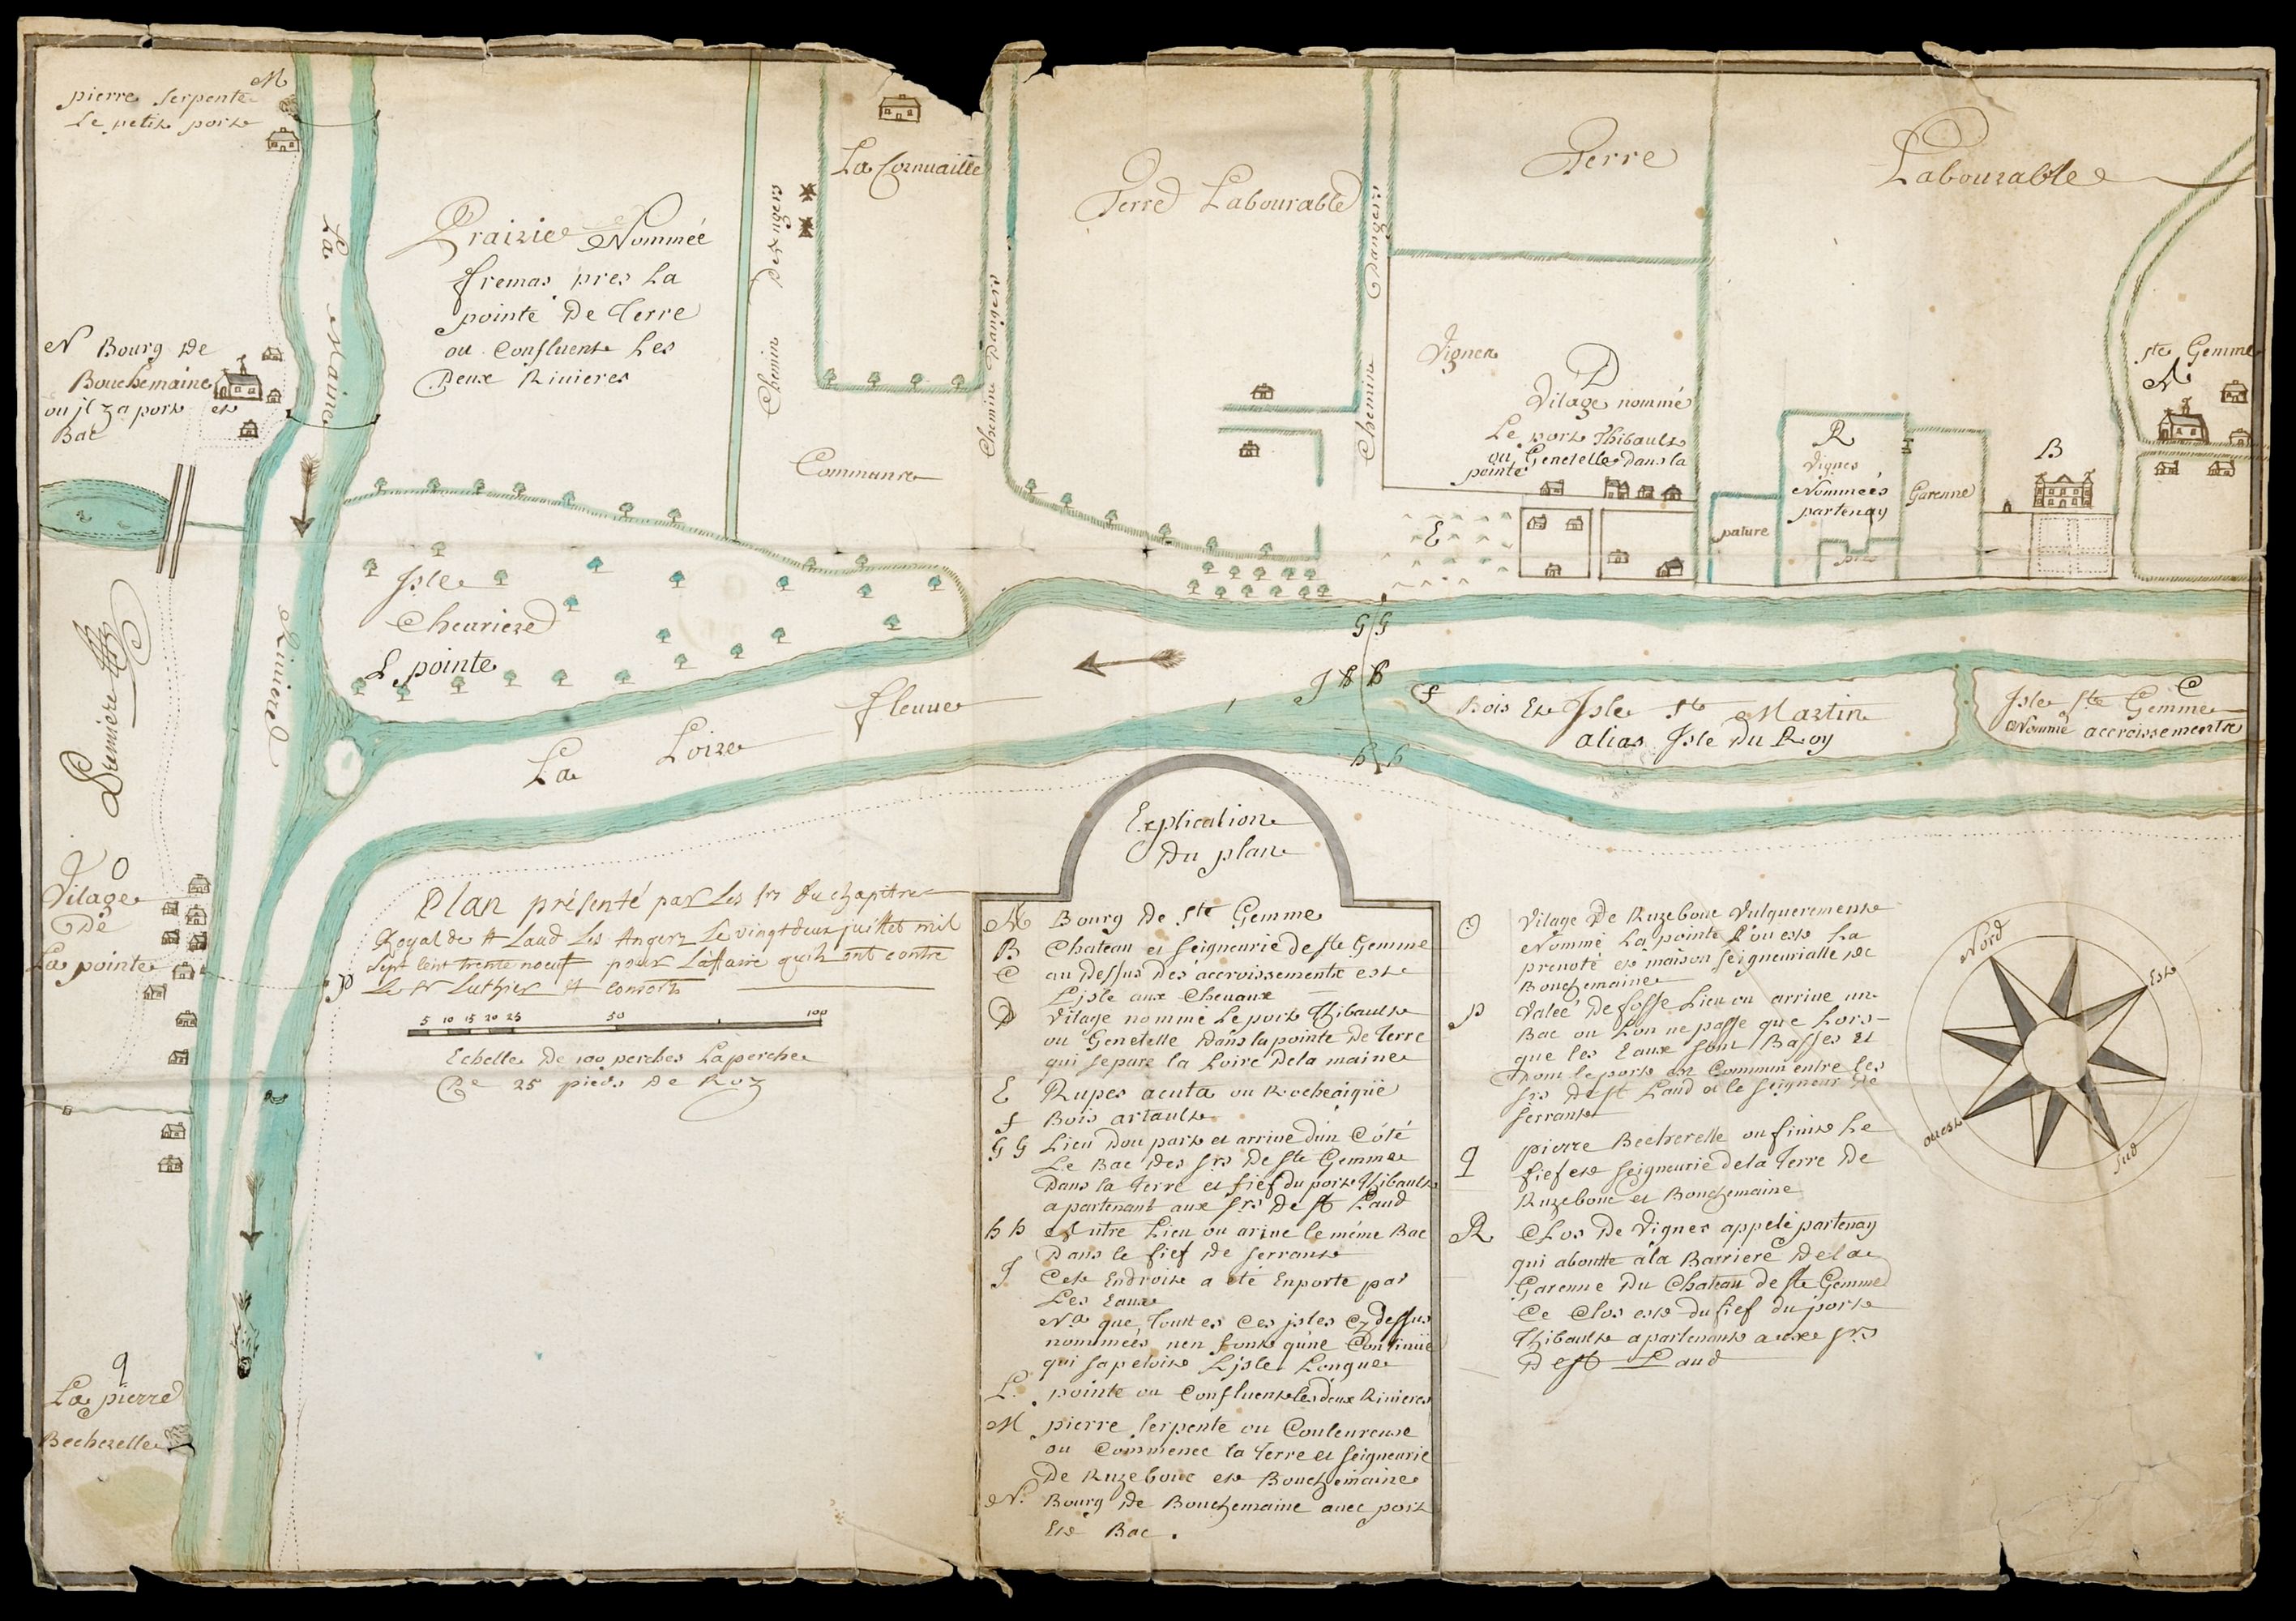 M
pierre Serpente
Le petit port
La Maine Riviere
Prairie Nommée
fremas pres La
pointe De Terre
ou Confluent Les
Deux Rivieres
Chemin Des Angers
La Cornuaille
Chemin Dangers
Terre Labourable
Chemin Dangers
Terre
Labourable
N Bourg De
Bouchemaine
ou jl y a port et
Bac
Commune
Vignes
D
Vilage nommé
Le port Thibault
ou Genetelle dans la
pointe
E
R
Vignes
Nommées
partenay
Garenne
pature
pré
B
ste Gemme
A
Isle
Cheuriere
L pointe
La Loire fleuue
G G
J
h h
f
Bois Et Isle St Martin
alias Isle Du Roy
C
Isle Ste Gemme
Nommé accroissements
Premiere
O
Vilage
De
La pointe
P
Plan présenté par Les srs du chapitre
Royal de St Laud Les Angers Le vingt deux juillet mil
Sept Cent trente noeuf pour L'affaire qu'ils ont contre
Le Sr Luthier et consorts
5 10 15 20 25 50 100
Echelle De 100 perches La perche
De 25 pieds De Roy
q
La pierre
Becherelle
Explication
Du plan
A Bourg De Ste Gemme
B Chateau et seigneurie de Ste Gemme
C au Dessus des accroissements est
L'isle aux Cheuaux
D Vilage nommé Le port Thibault
ou Genetelle Dans la pointe De Terre
qui separe la Loire De la maine
E Rupes acuta ou Rocheaiguë
f Bois artault
G G Lieu Dou part et arrive d'un Côté
Le Bac Des srs De Ste Gemme
Dans la Terre et fief du port Thibault
apartenant aux srs De St Laud
h h Autre Lieu ou arive le même Bac
Dans le fief De Serrant
J Cet Endroit a été Enporté par
Les Eaux
Na que Touttes Ces isles Cy Dessus
nommées nen font qu'une Continuë
qui sapeloit L'isle Longue
L. pointe ou Confluent les deux Rivieres
M pierre serpente ou Couleureuse
ou Commence la Terre et seigneurie
De Ruzebouc et Bouchemaine
N. Bourg De Bouchemaine auec port
Et Bac.
O Vilage De Ruzebouc Vulguerement
Nommé La pointe D'ou est La
prevoté et maison seigneurialle De
Bouchemaine
P Valeé De fosse Lieu ou arrive un
Bac ou Lon ne passe que Lors-
que les Eaux sont Basses Et
Dont le port est Commun entre les
srs De St Laud et le seigneur De
serrant
q pierre Becherelle ou finit Le
fief et seigneurie de la Terre De
Ruzebouc et Bouchemaine
R Clos De Vignes appelé partenay
qui aboutte à la Barriere De la
Garenne Du Chateau de Ste Gemme
Ce Clos est du fief du port
Thibault apartenant aux srs
De St Laud
Nord
Est
Sud
ouest